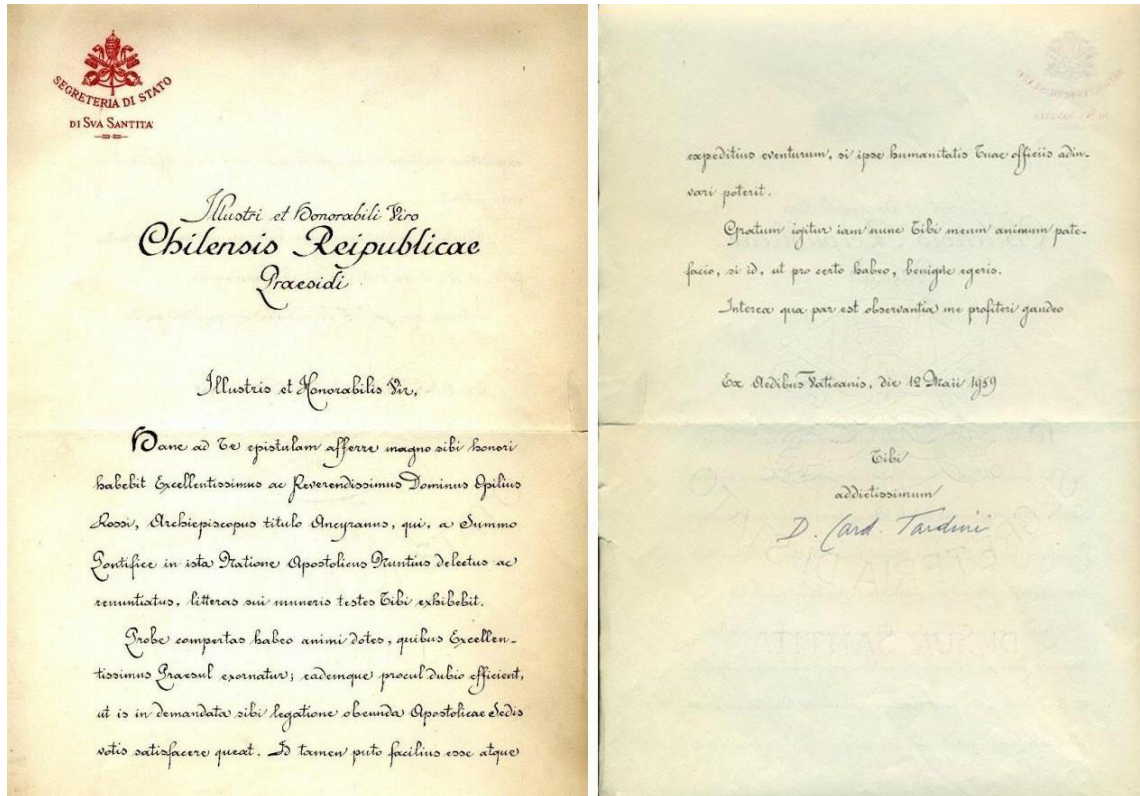 SEGRETERIA DI STATO
DI SVA SANTITA'
Illustri et Honorabili Viro
Chilensis Reipublicae
Praesidi
Illustris et Honorabilis Vir,
Hanc ad Te epistulam afferre magno sibi honori
habebit Excellentissimus ac Reverendissimus Dominus Opilius
Rossi, Archiepiscopus titulo Ancyranus, qui, a Summo
Pontifice in ista Natione Apostolicus Nuntius delectus ac
renuntiatus, litteras sui muneris testes Tibi exhibebit.
Probe compertas habeo animi dotes, quibus Excellen-
tissimus Praesul exornatur; eademque procul dubio efficient,
ut is in demandata sibi legatione obeunda Apostolicae Sedis
votis satisfacere queat. Id tamen puto facilius esse atque
expeditius eventurum, si ipse humanitatis Tuae officiis adiu-
vari poterit.
Gratum igitur iam nunc Tibi meum animum pate-
facio, si id, ut pro certo habeo, benigne egeris.
Interea qua par est observantia me profiteri gaudeo
Ex Aedibus Vaticanis, die 12 Maii 1959
Tibi
addictissimum
D. Card. Tardini